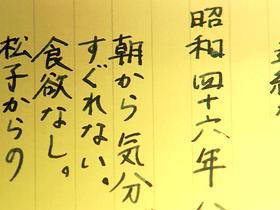 昭和四十六年
朝から気分
すぐれない。
食欲なし。
松子からの